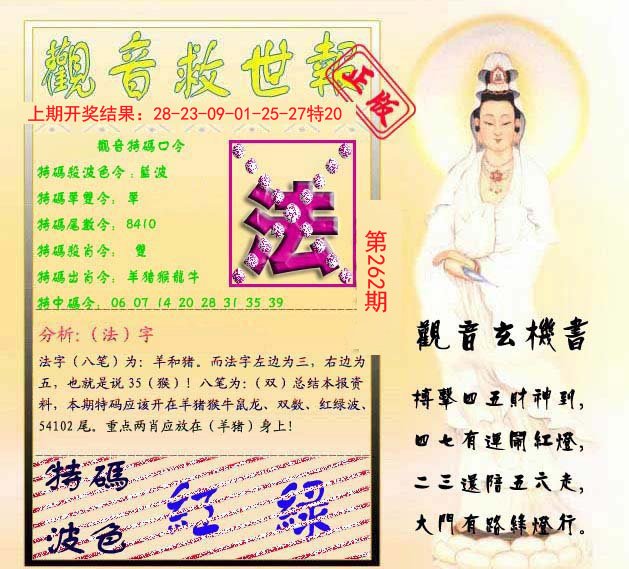 觀音救世報
正版
上期开奖结果：28-23-09-01-25-27特20
觀音特碼口令
特碼殺波色令：藍波
特碼單雙令： 單
特碼尾數令： 8410
特碼殺肖令： 雙
特碼出肖令： 羊猪猴龍牛
特中碼令： 06 07 14 20 28 31 35 39
法
第262期
分析:（法）字
法字（八笔）为：羊和猪。而法字左边为三，右边为
五，也就是说 35（猴）！八笔为：（双）总结本报资
料，本期特码应该开在羊猪猴牛鼠龙、双数、红绿波、
54102 尾。重点两肖应放在（羊猪）身上！
特碼
波色
红 绿
觀音玄機書
搏擊四五財神到，
四七有運鬧紅燈，
二三還陪五六走，
大門有路綠燈行。